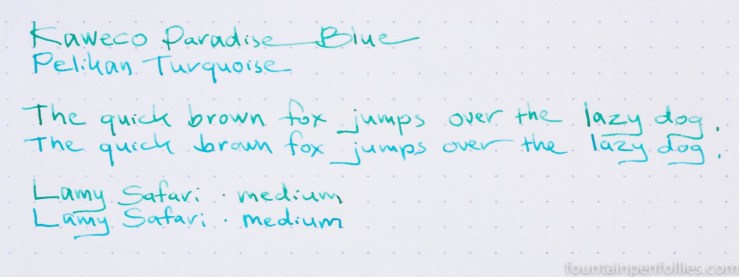 Kaweco Paradise Blue
Pelikan Turquoise
The quick brown fox jumps over the lazy dog.
The quick brown fox jumps over the lazy dog.
Lamy Safari · medium
Lamy Safari · medium
fountainpenfollies.com